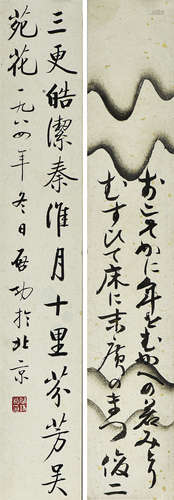 三更皓潔秦淮月十里芬芳吴
苑花一九八四年冬日啟功於北京
おごそかに年をむかへの若みどり
むすびて床に末廣のまつ 俊二